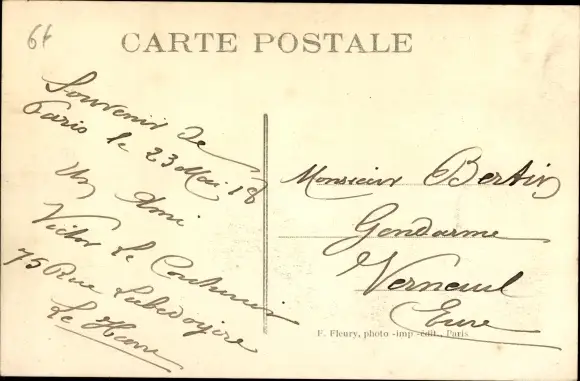 6f
CARTE POSTALE
Souvenir de
Paris le 23 Mai 18
Un Ami
Victor Le
75 Rue Labedoyère
Le Havre
Monsieur Bertin
Gendarme
Verneuil
Eure
F. Fleury, photo-imp.-édit., Paris